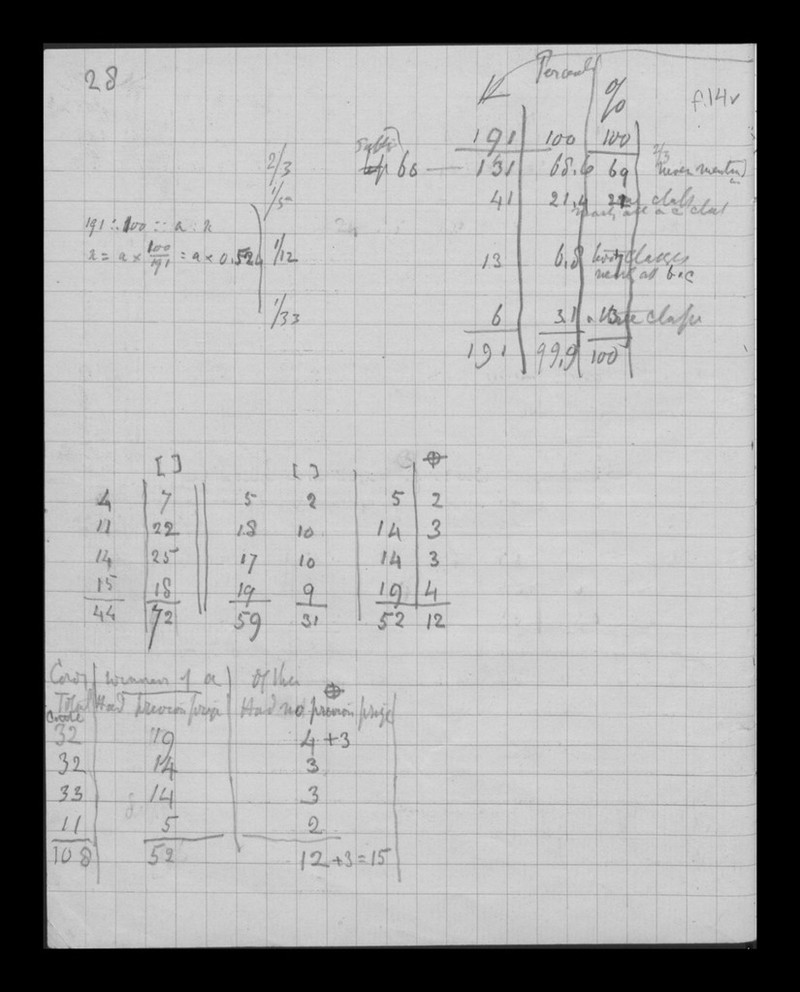 28
Percent
%
f.14v
191 100 100
2/3 66 — 131 68.6 69 2/3 never
1/5 41 21,4
191 : 100 :: a : x
x = a × 100/191 = a × 0.524
1/12 13 6,8 classes
1/33 6 3.1 3 class
191 99,9 100
[ ] [ ] ⊕
4 7 5 2 5 2
11 22 18 10 14 3
14 25 17 10 14 3
15 18 19 9 19 4
44 72 59 31 52 12
winners of a Of the
Total Had previous prize Had no previous prize ⊕
32 19 4 + 3
32 14 3
33 14 3
11 5 2
108 52 12 + 3 = 15